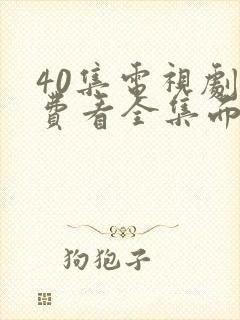 40集電視劇
費看全集而
狗狍子